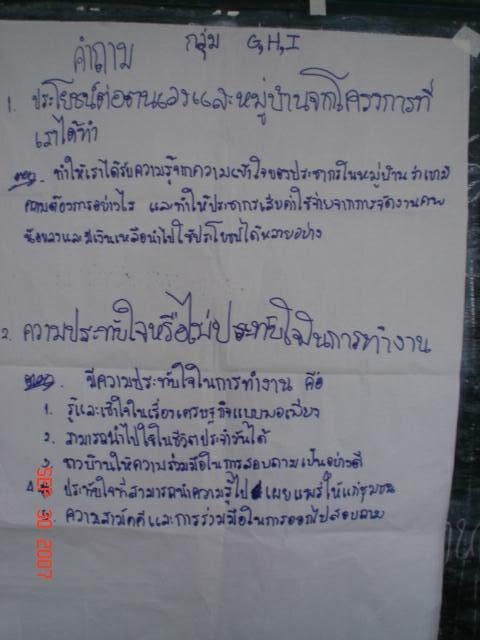 คำถาม กลุ่ม G,H,I
1. ประโยชน์ต่อตนเองและหมู่บ้านจากโครงการที่
เราได้ทำ
ตอบ. ทำให้เราได้รับความรู้จากความเข้าใจของประชากรในหมู่บ้าน ว่าเขามี
ความต้องการอย่างไร และทำให้ประชากรเสียค่าใช้จ่ายจากการจัดงานศพ
น้อยลงและมีเงินเหลือนำไปใช้ประโยชน์ได้หลายอย่าง
2. ความประทับใจหรือไม่ประทับใจในการทำงาน
ตอบ. มีความประทับใจในการทำงาน คือ
1. รู้และเข้าใจในเรื่องเศรษฐกิจแบบพอเพียง
2. สามารถนำไปใช้ในชีวิตประจำวันได้
3. ชาวบ้านให้ความร่วมมือในการสอบถามเป็นอย่างดี
4. ประทับใจที่สามารถนำความรู้ไปเผยแพร่ให้แก่ชุมชน
5. ความสามัคคีและการร่วมมือในการออกไปสอบถาม
SEP 30 2007